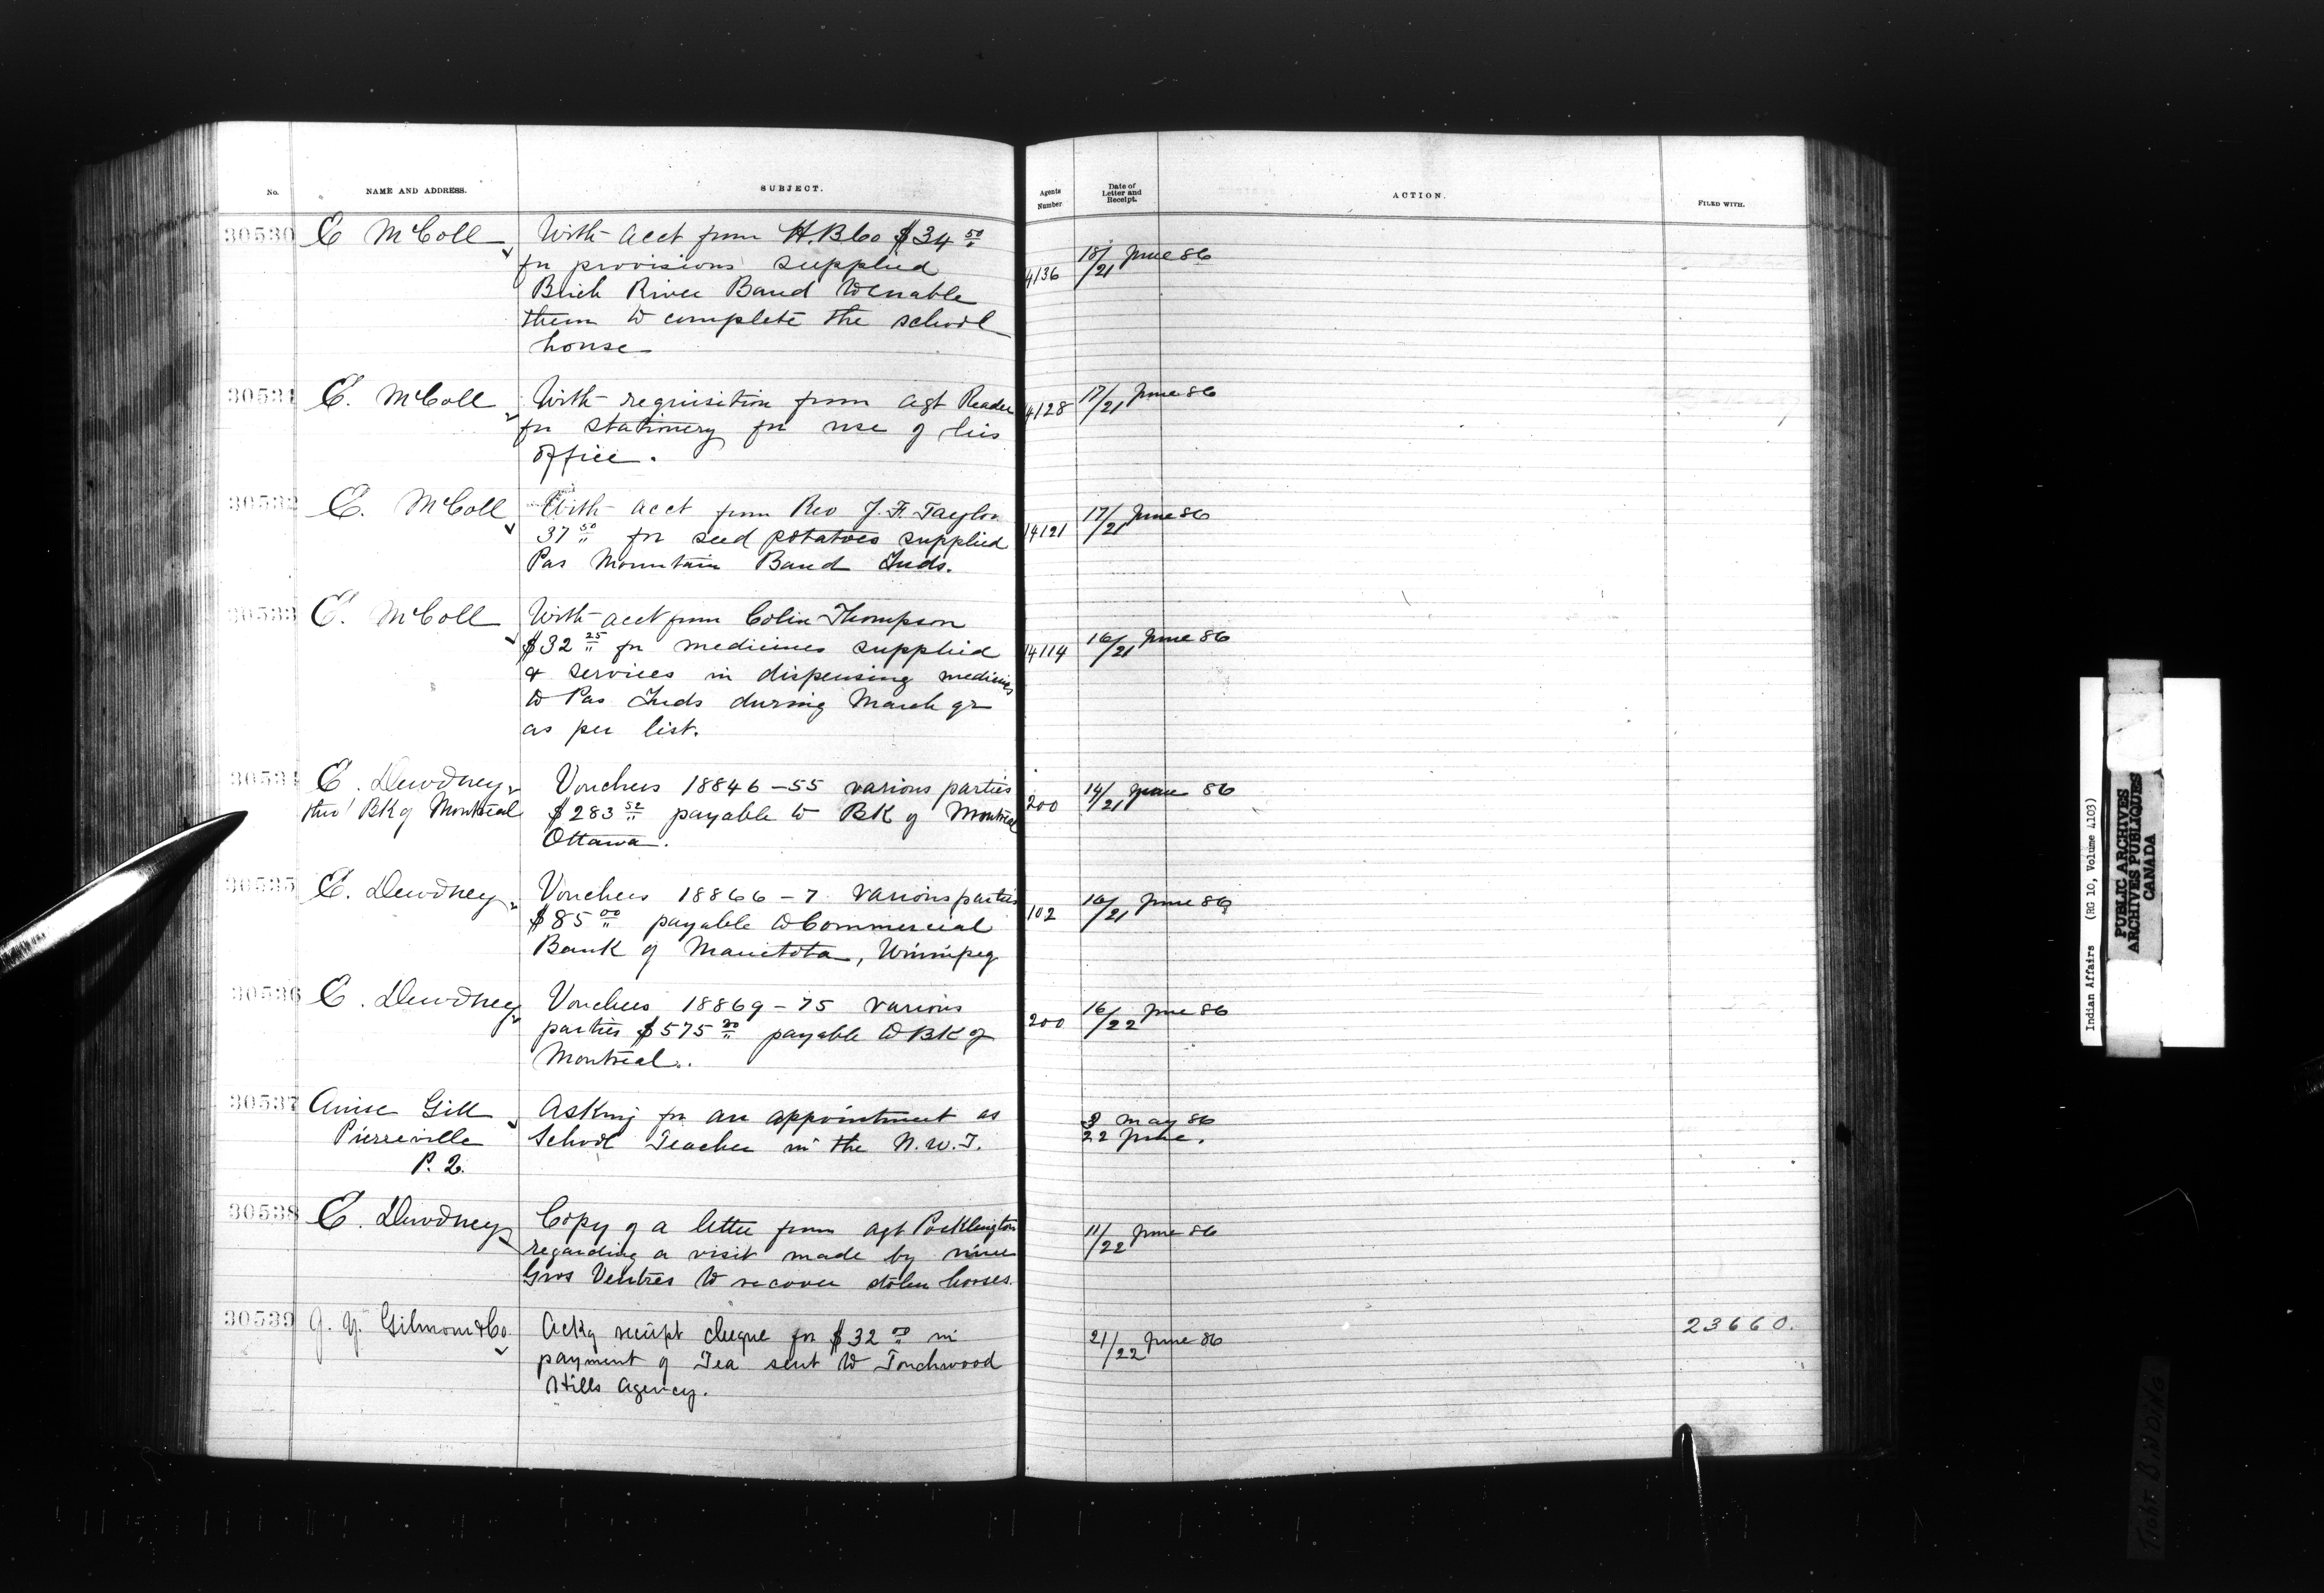 No.
NAME AND ADDRESS.
SUBJECT.
Agents Number
Date of Letter and Receipt.
ACTION.
FILED WITH.
30530
E McColl
With acct from H.B Co $34 50
for provisions supplied
Birch River Band to enable
them to complete the school
house
4136
18/21 June 86
30531
E. McColl
With requisition from agt Reader
for stationery for use of his
office.
4128
17/21 June 86
30532
E. McColl
With acct from Rev J. F. Taylor
37 50 for seed potatoes supplied
Pas Mountain Band Inds.
14121
17/21 June 86
30533
E. McColl
With acct from Colin Thompson
$32 25 for medicines supplied
& services in dispensing medicines
to Pas Inds during March qr
as per list.
14114
16/21 June 86
30534
E. Dewdney
thro' BK of Montreal
Vouchers 18846-55 various parties
$283 52 payable to BK of Montreal
Ottawa.
200
14/21 June 86
30535
E. Dewdney
Vouchers 18866-7 various parties
$85 00 payable to Commercial
Bank of Manitoba, Winnipeg
102
16/21 June 86
30536
E. Dewdney
Vouchers 18869-75 various
parties $575 payable to BK of
Montreal.
200
16/22 June 86
30537
Anise Gill
Pierreville
P. Q.
Asking for an appointment as
School Teacher in the N.W.T.
3 May 86
22 June.
30538
E. Dewdney
Copy of a letter from agt Pocklington
regarding a visit made by nine
Gros Ventres to recover stolen horses.
11/22 June 86
30539
J. Y. Gilmour & Co.
Ackg receipt cheque for $32 in
payment of Tea sent to Touchwood
Hills Agency.
21/22 June 86
23660.
Indian Affairs (RG 10, Volume 4103)
PUBLIC ARCHIVES
ARCHIVES PUBLIQUES
CANADA
TIGHT BINDING